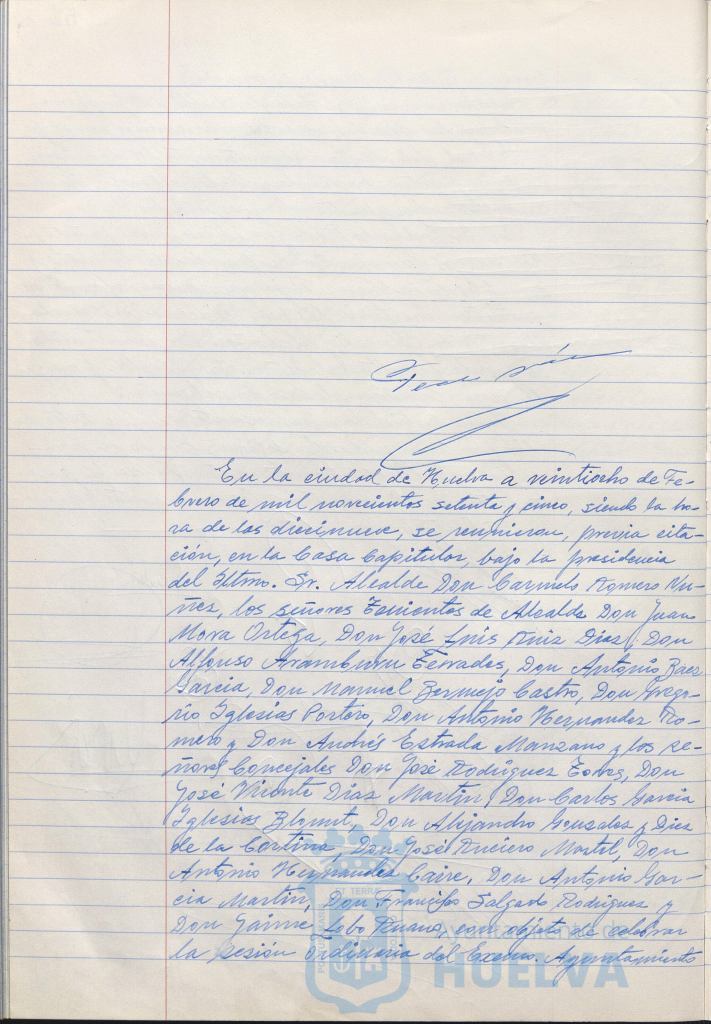 En la ciudad de Huelva a veintiocho de Fe-
brero de mil novecientos setenta y cinco, siendo la ho-
ra de las diecinueve, se reunieron, previa cita-
ción, en la Casa Capitular, bajo la presidencia
del Iltmo. Sr. Alcalde Don Carmelo Romero Nu-
ñez, los señores Tenientes de Alcalde Don Juan
Mora Ortega, Don José Luis Ruiz Diaz, Don
Alfonso Aramburu Terrades, Don Antonio Baez
Garcia, Don Manuel Bermejo Castro, Don Grego-
rio Iglesias Portero, Don Antonio Hernandez Ro-
mero y Don Andrés Estrada Manzano y los se-
ñores Concejales Don José Rodriguez Torres, Don
José Vicente Diaz Martin, Don Carlos Garcia
Iglesias Don Alejandro Gonzalez y Diez
de la Cortina, Don José Don
Antonio Hernandez Don Antonio Gar-
cia Martin, Don Francisco Salgado Rodriguez y
Don Jaime Lobo Ruano, con objeto de celebrar
la sesión ordinaria del Excmo. Ayuntamiento
Ayuntamiento de
HUELVA